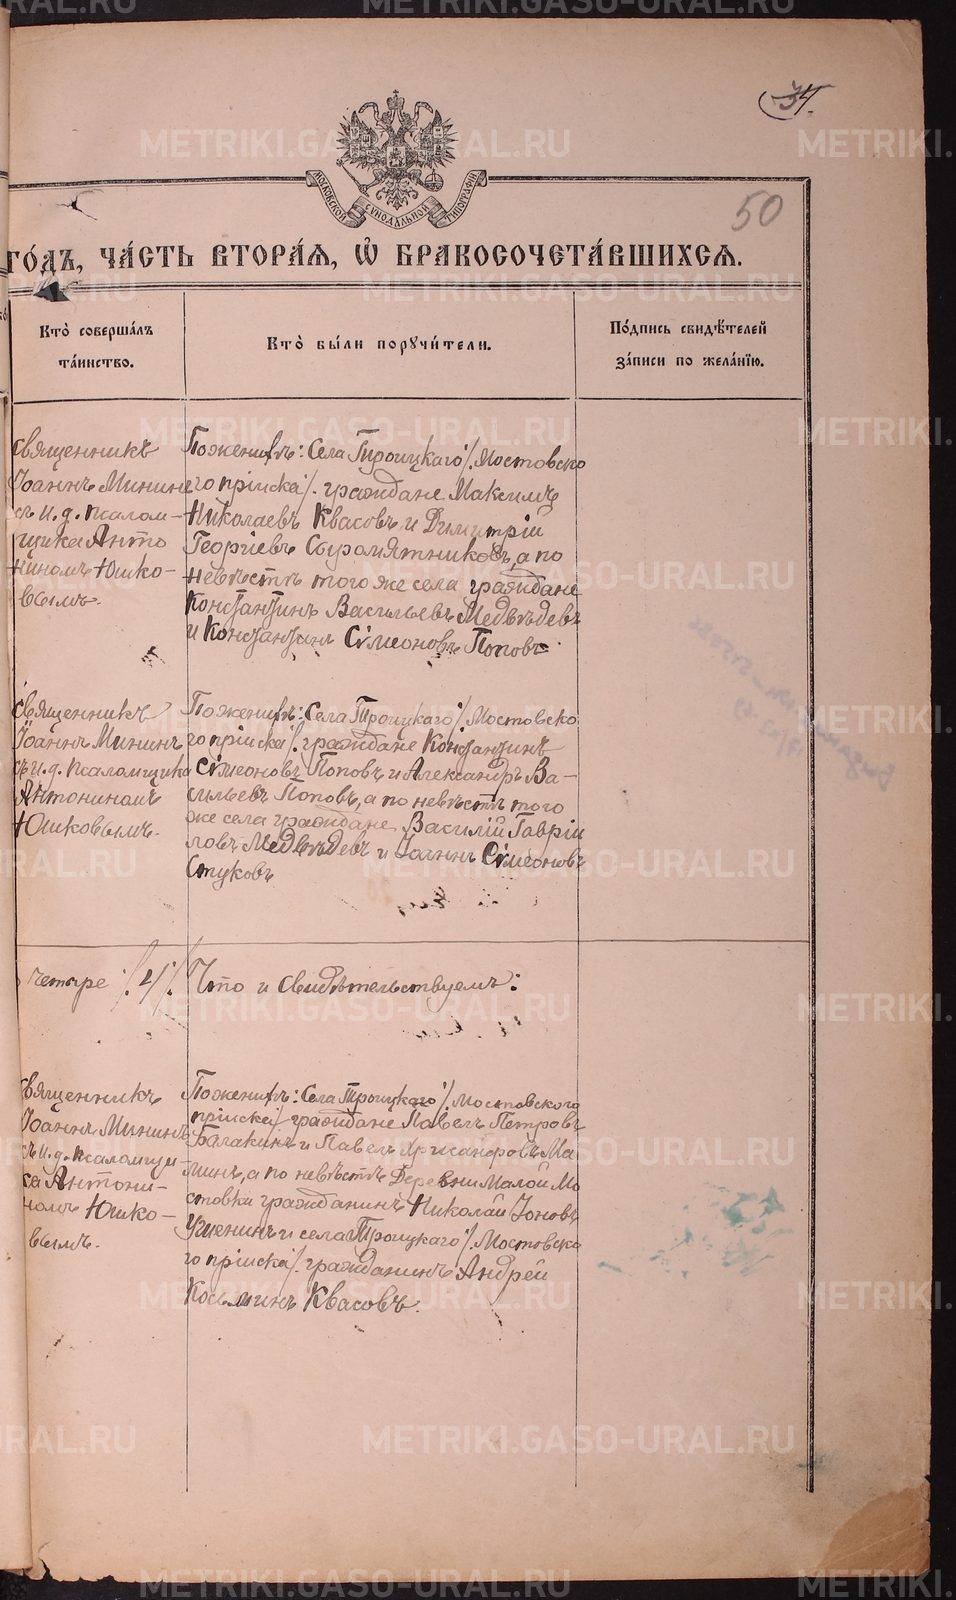 34.
50
МОСКОВСКОЙ СѴНОДАЛЬНОЙ ТИПОГРАФІИ
ГО́ДЪ, ЧА́СТЬ ВТОРА́Я, Ѡ҆ БРАКОСОЧЕТА́ВШИХСЯ.
Кто̀ соверша́лъ
та́инство.
Кто̀ бы́ли порꙋчи́тели.
По́дпись свидѣ́телей
за́писи по жела́нїю.
Священникъ
Іоаннъ Мининъ
съ и. д. псалом-
щика Анто
ниномъ Юшко-
вымъ.
По женихѣ: Села Троицкаго /. Мостовско
го пріиска /. граждане Максимъ
Николаевъ Квасовъ и Димитрій
Георгіевъ Сыромятниковъ, а по
невѣстѣ того же села граждане
Константинъ Васильевъ Медвѣдевъ
и Константинъ Симеоновъ Поповъ.
Священникъ
Іоаннъ Мининъ
съ и. д. псаломщика
Антониномъ
Юшковымъ.
По женихѣ: Села Троицкаго /. Мостовско
го пріиска /. граждане Константинъ
Симеоновъ Поповъ и Александръ Ва-
сильевъ Поповъ, а по невѣстѣ того
же села граждане Василій Гавріи
ловъ Медвѣдевъ и Іоаннъ Симеоновъ
Стуковъ
четыре /. 4 /.
Что и свидѣтельствуемъ:
Священникъ
Іоаннъ Мининъ
съ и. д. псаломщи-
ка Антони-
номъ Юшко-
вымъ.
По женихѣ: Села Троицкаго /. Мостовского
пріиска / граждане Павелъ Петровъ
Балакинъ и Павелъ Хрисанфовъ Ма
лицинъ, а по невѣстѣ Деревни Малой Мо
стовки гражданинъ Николай Іоновъ
и села Троицкаго /. Мостовска
го пріиска /. гражданинъ Андрей
Косьминъ Квасовъ.
METRIKI.GASO-URAL.RU